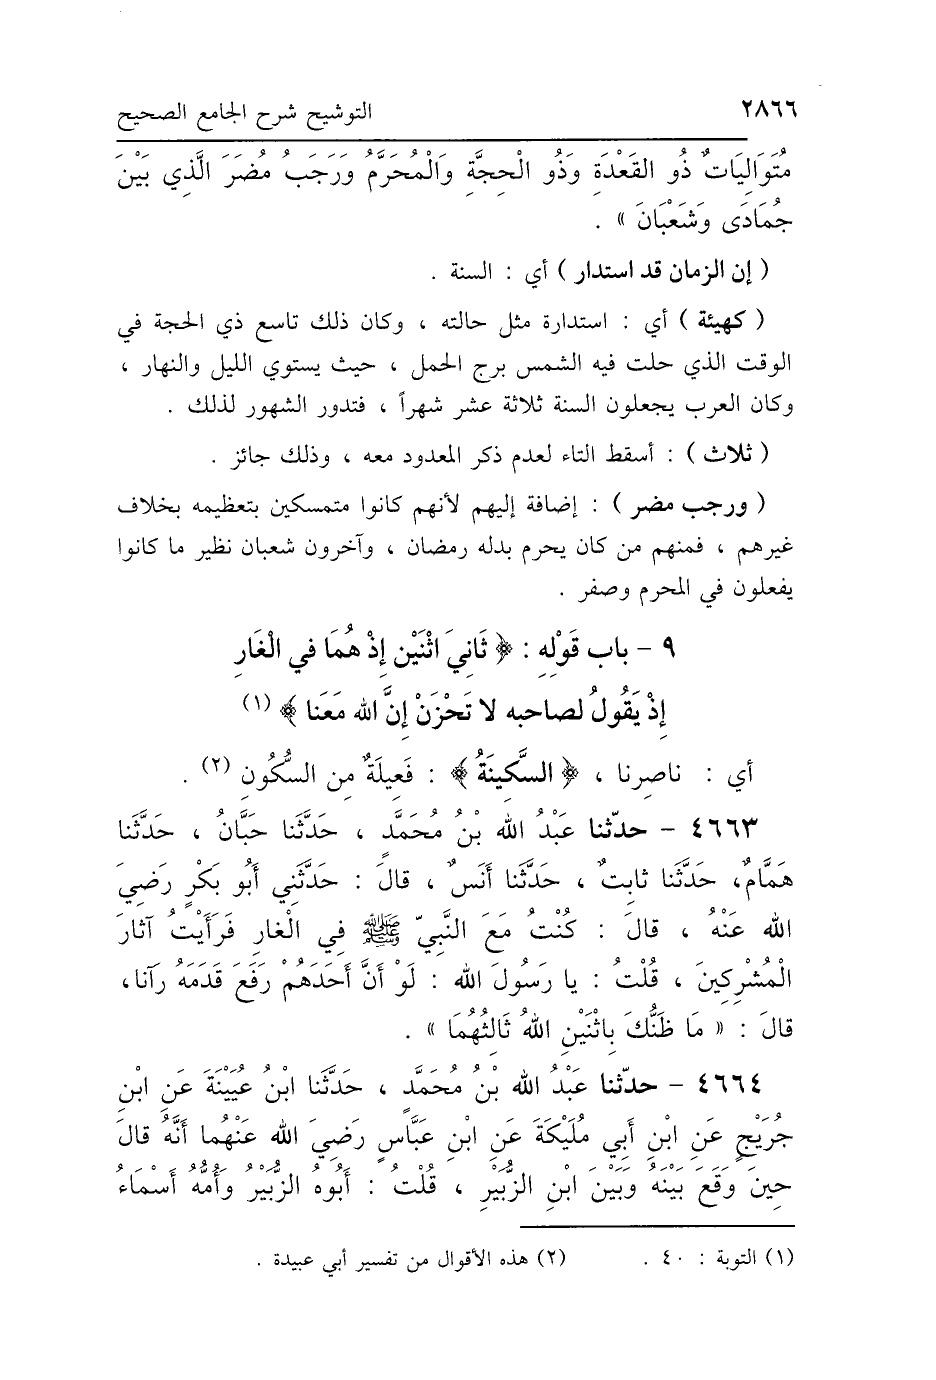 ٢٨٦٦ التوشيح شرح الجامع الصحيح
مُتَوَالِيَاتٌ ذُو القَعْدَةِ وَذُو الْحِجَّةِ وَالْمُحَرَّمُ وَرَجَبُ مُضَرَ الَّذِي بَيْنَ
جُمَادَى وَشَعْبَانَ » .
( إن الزمان قد استدار ) أي : السنة .
( كهيئة ) أي : استدارة مثل حالته ، وكان ذلك تاسع ذي الحجة في
الوقت الذي حلت فيه الشمس برج الحمل ، حيث يستوي الليل والنهار ،
وكان العرب يجعلون السنة ثلاثة عشر شهراً ، فتدور الشهور لذلك .
( ثلاث ) : أسقط التاء لعدم ذكر المعدود معه ، وذلك جائز .
( ورجب مضر ) : إضافة إليهم لأنهم كانوا متمسكين بتعظيمه بخلاف
غيرهم ، فمنهم من كان يحرم بدله رمضان ، وآخرون شعبان نظير ما كانوا
يفعلون في المحرم وصفر .
٩ - باب قَوْلِهِ : ﴿ ثَانِيَ اثْنَيْنِ إِذْ هُمَا فِي الْغَارِ
إِذْ يَقُولُ لصاحبه لا تَحْزَنْ إِنَّ اللهَ مَعَنا ﴾ (١)
أي : ناصرنا ، ﴿ السَّكِينَةُ ﴾ : فَعِيلَةٌ مِن السُّكُونِ (٢) .
٤٦٦٣ - حدّثنا عَبْدُ اللهِ بْنُ مُحَمَّدٍ ، حَدَّثَنا حَبَّانُ ، حَدَّثَنا
هَمَّامٌ، حَدَّثَنا ثابِتٌ ، حَدَّثَنا أَنَسٌ ، قالَ : حَدَّثَنِي أَبُو بَكْرٍ رَضِيَ
اللهُ عَنْهُ ، قالَ : كُنْتُ مَعَ النَّبِيِّ ﷺ فِي الْغارِ فَرَأَيْتُ آثارَ
الْمُشْرِكِينَ ، قُلْتُ : يا رَسُولَ اللهِ : لَوْ أَنَّ أَحَدَهُمْ رَفَعَ قَدَمَهُ رَآنا،
قالَ : « مَا ظَنُّكَ بِاثْنَيْنِ اللهُ ثَالِثُهُمَا » .
٤٦٦٤ - حدّثنا عَبْدُ اللهِ بْنُ مُحَمَّدٍ ، حَدَّثَنا ابْنُ عُيَيْنَةَ عَنِ ابْنِ
جُرَيْجٍ عَنِ ابْنِ أَبِي مُلَيْكَةَ عَنِ ابْنِ عَبَّاسٍ رَضِيَ اللهُ عَنْهُما أَنَّهُ قالَ
حِينَ وَقَعَ بَيْنَهُ وَبَيْنَ ابْنِ الزُّبَيْرِ ، قُلْتُ : أَبُوهُ الزُّبَيْرُ وَأُمُّهُ أَسْمَاءُ
(١) التوبة : ٤٠ . (٢) هذه الأقوال من تفسير أبي عبيدة .